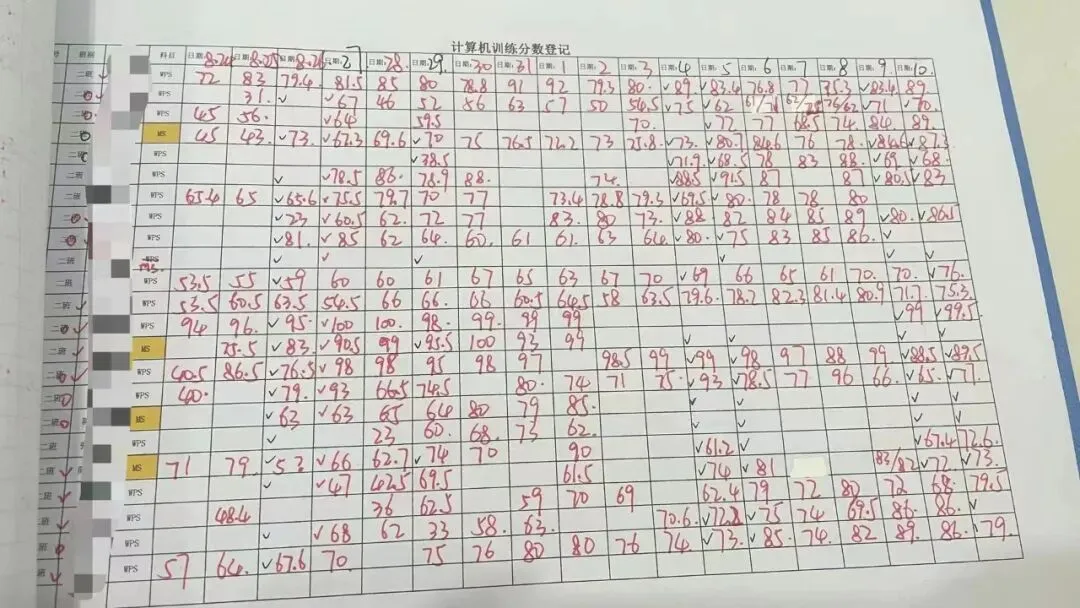 计算机训练分数登记
班别 科目 日期:8.24 日期:8.25 日期:8.26 日期:27 日期:28. 日期:29. 日期:30 日期:31 日期:1 日期:2 日期:3 日期:4 日期:5 日期:6 日期:7 日期:8 日期:9 日期:10.
二班 WPS 72 83 79.4 81.5 85 80 78.8 91 92 79.3 80. √89 √83.4 76.8 77 75.3 √83.4 89
WPS 31. √ √67 46 52 56 63 57 50 54.5 √75 √62 76/62 √71 √70.
二 WPS 45 56. √64 59.5 70. √72 77 68.5 74. 84. 89.
MS 45 43. √73. √67.3 69.6 √70 75 76.5 72.2 73 75.8 √73. √80. 84.6 76 78. √84.6 √87.3
二班 WPS √38.5 √71.9 √68.5 78 83 88. √69 √68
二班 WPS √ √78.5 86. 78.9 88. 74. √88.5 √91.5 87 87 √80.5 √83
WPS 65.4 65 √65.6 √75.5 79.7 70 77 73.4 78.8 79.3 √69.5 √80. 78 78 80
二 WPS √23 √60.5 62. 72 77 83. 80 73. √88 82 84 85 89 √80. √86.5
二 WPS √81. √85 62 64. 60. 61 61. 63 64. √80. √75 83 85 86. √
二班 WPS √ √ √ √ √ √ √
ms.
二班 WPS 53.5 55 √59 60 60 61 67 65 63 67 70 √69 66 65 61 70. 70. √76.
二班 WPS 53.5 60.5 63.5 54.5 66 66. 66 60.5 64.5 58 63.5 79.6 78.2 82.3 81.4 80.9 71.7 75.3
二 WPS 94 96. √95. √100 100. √98. 99. 99 99 √99 √99.5
二班 MS 75.5 √83. √90.5 99 √95.5 100 93 99 √ √ √ √
二 WPS 40.5 86.5 √76.5 √98 98 95 98 97 98.5 99 √99 √98 97 88 99 √88.5 √89.5
二 WPS 40. √79. √93 66.5 74.5 80. 74 71 75. √93 √78.5 77 96 66. √65. √77.
二 MS √63 √63 65 64 80 79 85. √ √ √ √
二班 WPS √ 23 60. 68. 73 62. √ √ √ √
二班 MS 71 79. √53 √66 62.7 √74 70 90 √61.2 √ √67.4 72.6
二班 WPS √ √47 42.5 69.5 61.5 √74 √81 83/82 √72. √73.
二班 WPS 48.4 36 62.5 59 70 69 62.4 79 72 80 72 68. 79.5
WPS √ √68 62 33 58. 63. 70.6 √75 74 69.5 86. 86. √
二班 WPS 57 64. √67.6 70 75 76 80 80 76 74. √73. √85. 74. 82 89. 86. √79.